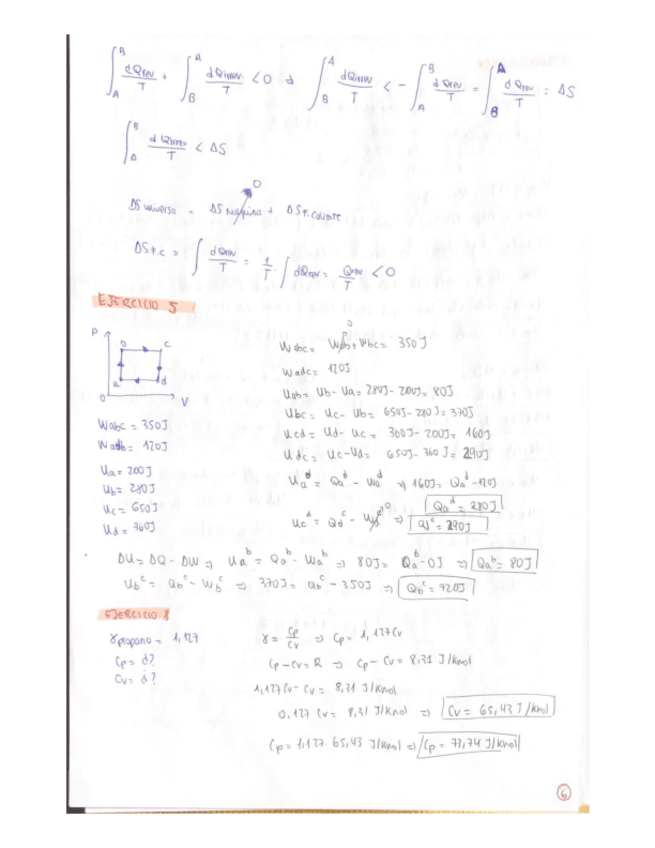 ∫_A^B dQrev/T + ∫_B^A dQirrev/T < 0 ⇒ ∫_B^A dQirrev/T < - ∫_A^B dQrev/T = ∫_B^A dQrev/T = ΔS
∫_A^B dQirrev/T < ΔS
ΔS universo = ΔS maquina + ΔS F.caliente
0
ΔS F.C = ∫ dQrev/T = 1/T ∫ dQrev = Qrev/T < 0
EJERCICIO 5
P b c a d 0 V
Wabc = Wab + Wbc = 350J
0
Wadc = 120J
Wabc = 350J
Wadb = 120J
Ua = 200J
Ub = 280J
Uc = 650J
Ud = 360J
Uab = Ub - Ua = 280J - 200J = 80J
Ubc = Uc - Ub = 650J - 280J = 370J
Ucd = Ud - Uc = 360J - 200J = 160J
Udc = Uc - Ud = 650J - 360J = 290J
Ua^d = Qa^d - Wa^d ⇒ 160J = Qa^d - 120J
Qa^d = 280J
Uc^d = Qd^c - Wd^c ⇒ Qd^c = 290J
0
ΔU = ΔQ - ΔW ⇒ Ua^b = Qa^b - Wa^b ⇒ 80J = Qa^b - 0J ⇒ Qa^b = 80J
Ub^c = Qb^c - Wb^c ⇒ 370J = Qb^c - 350J ⇒ Qb^c = 720J
EJERCICIO 8
γpropano = 1,127
Cp = ¿?
Cv = ¿?
γ = Cp/Cv ⇒ Cp = 1,127Cv
Cp - Cv = R ⇒ Cp - Cv = 8,31 J/kmol
1,127Cv - Cv = 8,31 J/kmol
0,127 Cv = 8,31 J/kmol ⇒ Cv = 65,43 J/kmol
Cp = 1,127 · 65,43 J/kmol ⇒ Cp = 73,74 J/kmol
6